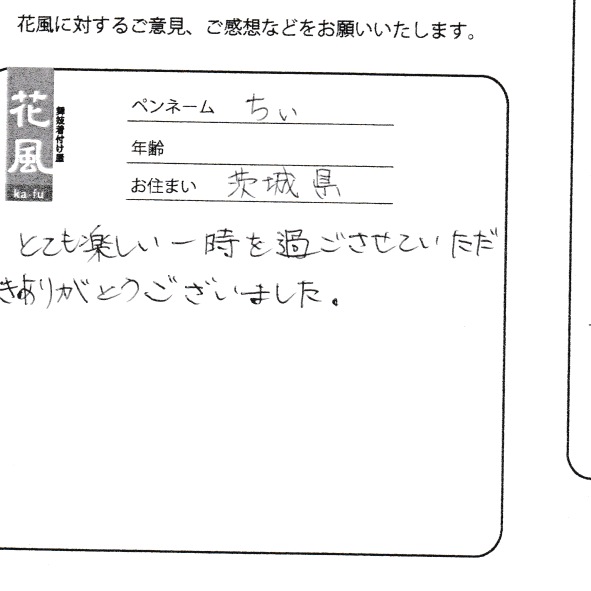 花風に対するご意見、ご感想などをお願いいたします。
花風
舞妓着付け屋
ka-fu
ペンネーム ちぃ
年齢
お住まい 茨城県
とても楽しい一時を過ごさせていただ
きありがとうございました。